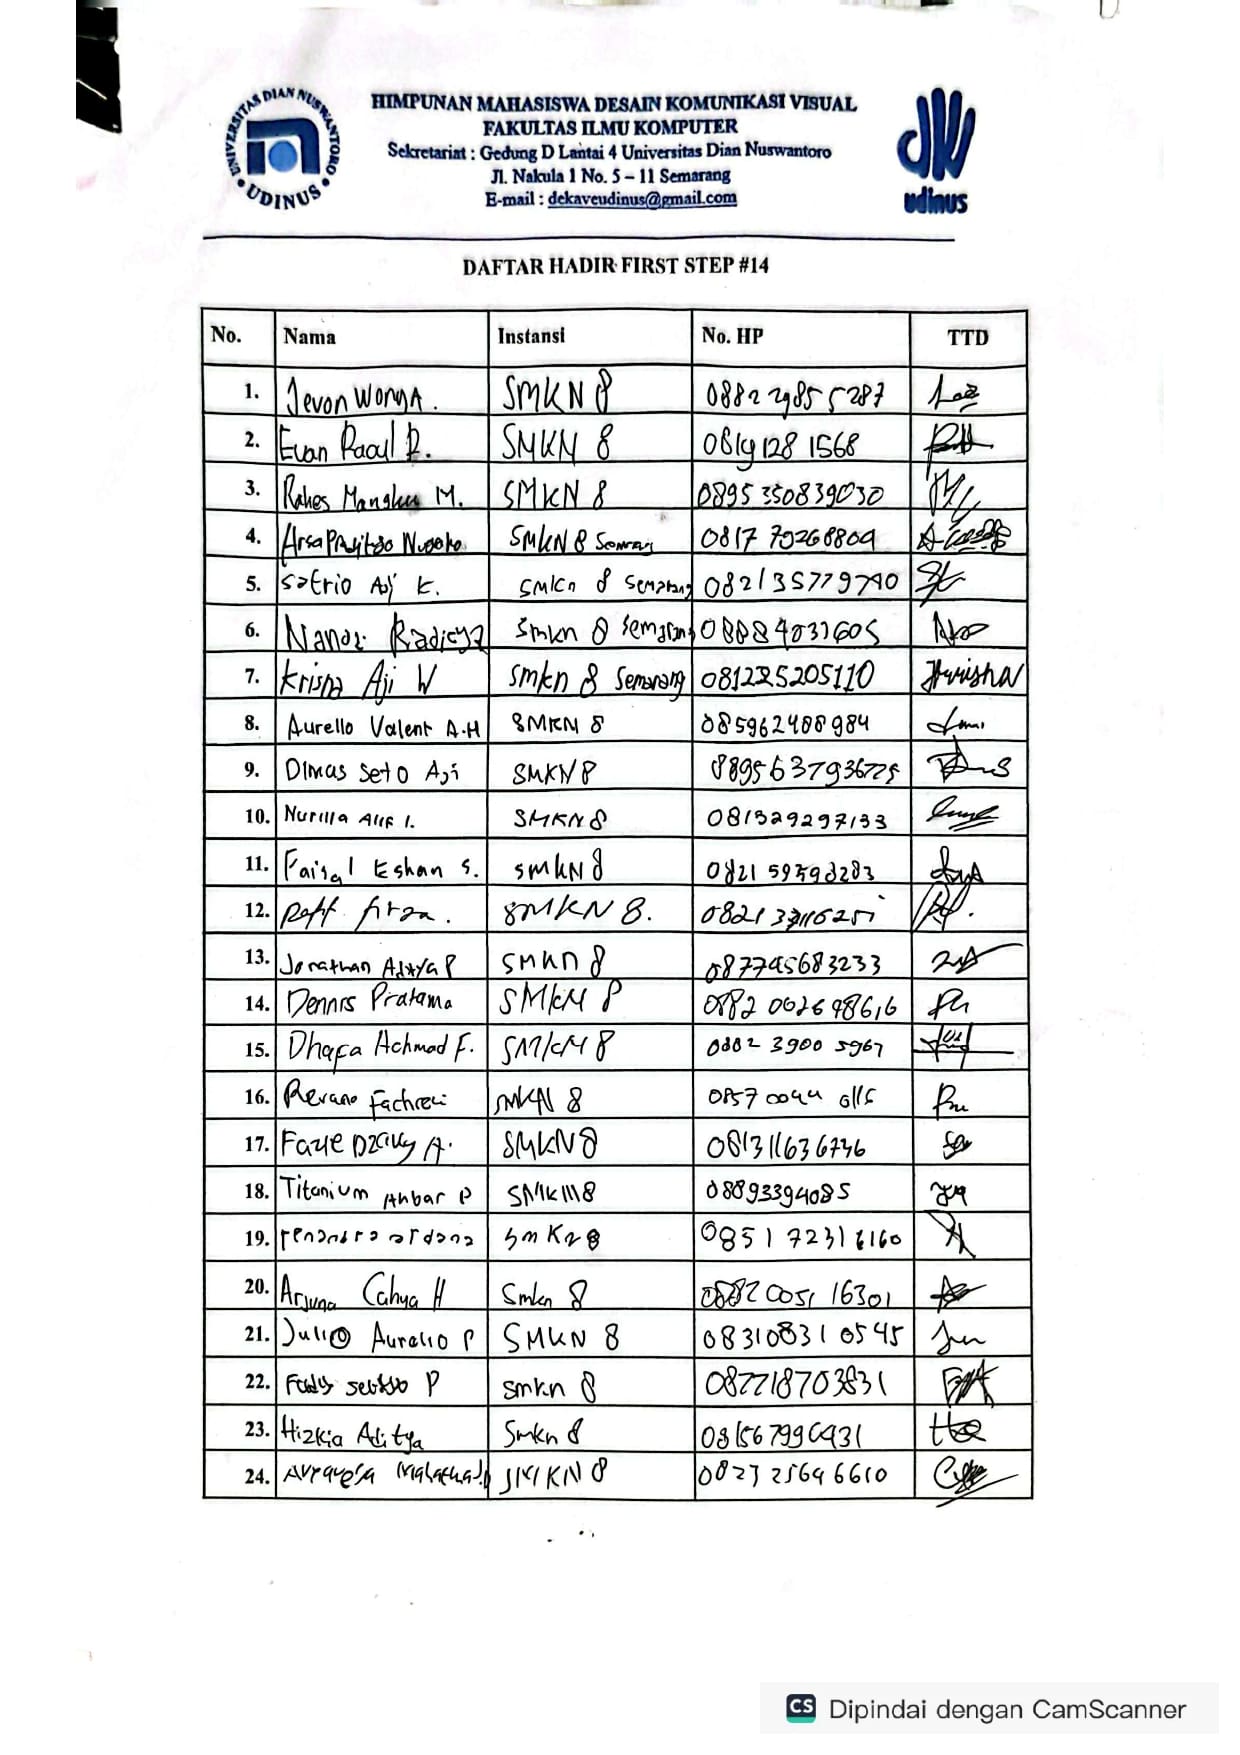 UNIVERSITAS DIAN NUSWANTORO
• UDINUS •
HIMPUNAN MAHASISWA DESAIN KOMUNIKASI VISUAL
FAKULTAS ILMU KOMPUTER
Sekretariat : Gedung D Lantai 4 Universitas Dian Nuswantoro
Jl. Nakula 1 No. 5 – 11 Semarang
E-mail : dekaveudinus@gmail.com
udinus
DAFTAR HADIR FIRST STEP #14
No. Nama Instansi No. HP TTD
1. Jevon Wonga. SMKN 8 0882 2985 5287
2. Evan Raoul R. SMKN 8 0819 128 1568
3. Rakes Mangku M. SMKN 8 0895 350839030
4. Arsa SMKN 8 0817 70268809
5. Satrio Aji K. smkn 8 Semarang
6. Radicya smkn 8 Semarang
7. Krisna Aji W smkn 8 Semarang 081225205110
8. Aurello Valent A.H SMKN 8 085962488984
9. Dimas Seto Aji SMKN 8 0895637936725
10. Nurilla Alif I. SMKN 8 081329297133
11. Faisal Eshan S. smkN 8
12. Raff firza. SMKN 8.
13. Jonathan Aditya P smkn 8 087745683233
14. Dennis Pratama SMKN 8
15. Dhafa Achmad F. SMKN 8 0882 3900 5967
16. Revano Fachrezi SMKN 8
17. A. SMKN 8 081311636736
18. Titanium Akbar P SMKN 8 08893394085
19. renandra ardana smKn 8 0851 72316160
20. Arjuna Cahya H Smkn 8 08820051 16301
21. Julio Aurelio P SMKN 8 083108310545
22. P smkn 8 087718703831
23. Hizkia Aditya Smkn 8
24. SMKN 8 0823 25646610
CS Dipindai dengan CamScanner